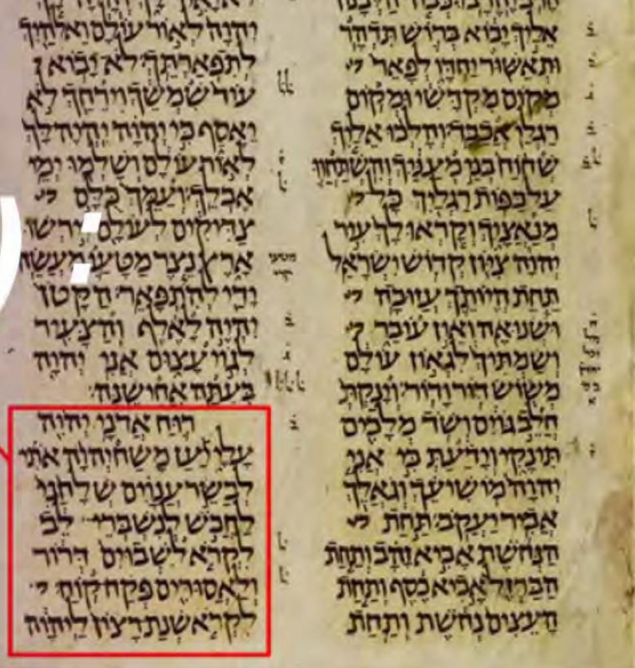 אליך יבוא ברוש תדהר
ותאשור יחדו לפאר
מקום מקדשי ומקום
רגלי אכבד והלכו אליך
שחוח בני מעניך והשתחוו
על כפות רגליך כל
מנאציך וקראו לך עיר
יהוה ציון קדוש ישראל
תחת היותך עזובה
ושנואה ואין עובר
ושמתיך לגאון עולם
משוש דור ודור וינקת
חלב גוים ושד מלכים
תינקי וידעת כי אני
יהוה מושיעך וגאלך
אביר יעקב תחת
הנחשת אביא זהב ותחת
הברזל אביא כסף ותחת
העצים נחשת ותחת
יהוה לאור עולם ואלהיך
לתפארתך לא יבוא
עוד שמשך וירחך לא
יאסף כי יהוה יהיה לך
לאור עולם ושלמו ימי
אבלך ועמך כלם
צדיקים לעולם יירשו
ארץ נצר מטעו מעשה
ידי להתפאר הקטן
יהיה לאלף והצעיר
לגוי עצום אני יהוה
בעתה אחישנה
רוח אדני יהוה
עלי יען משח יהוה אתי
לבשר ענוים שלחני
לחבש לנשברי לב
לקרא לשבוים דרור
ולאסורים פקח קוח
לקרא שנת רצון ליהוה